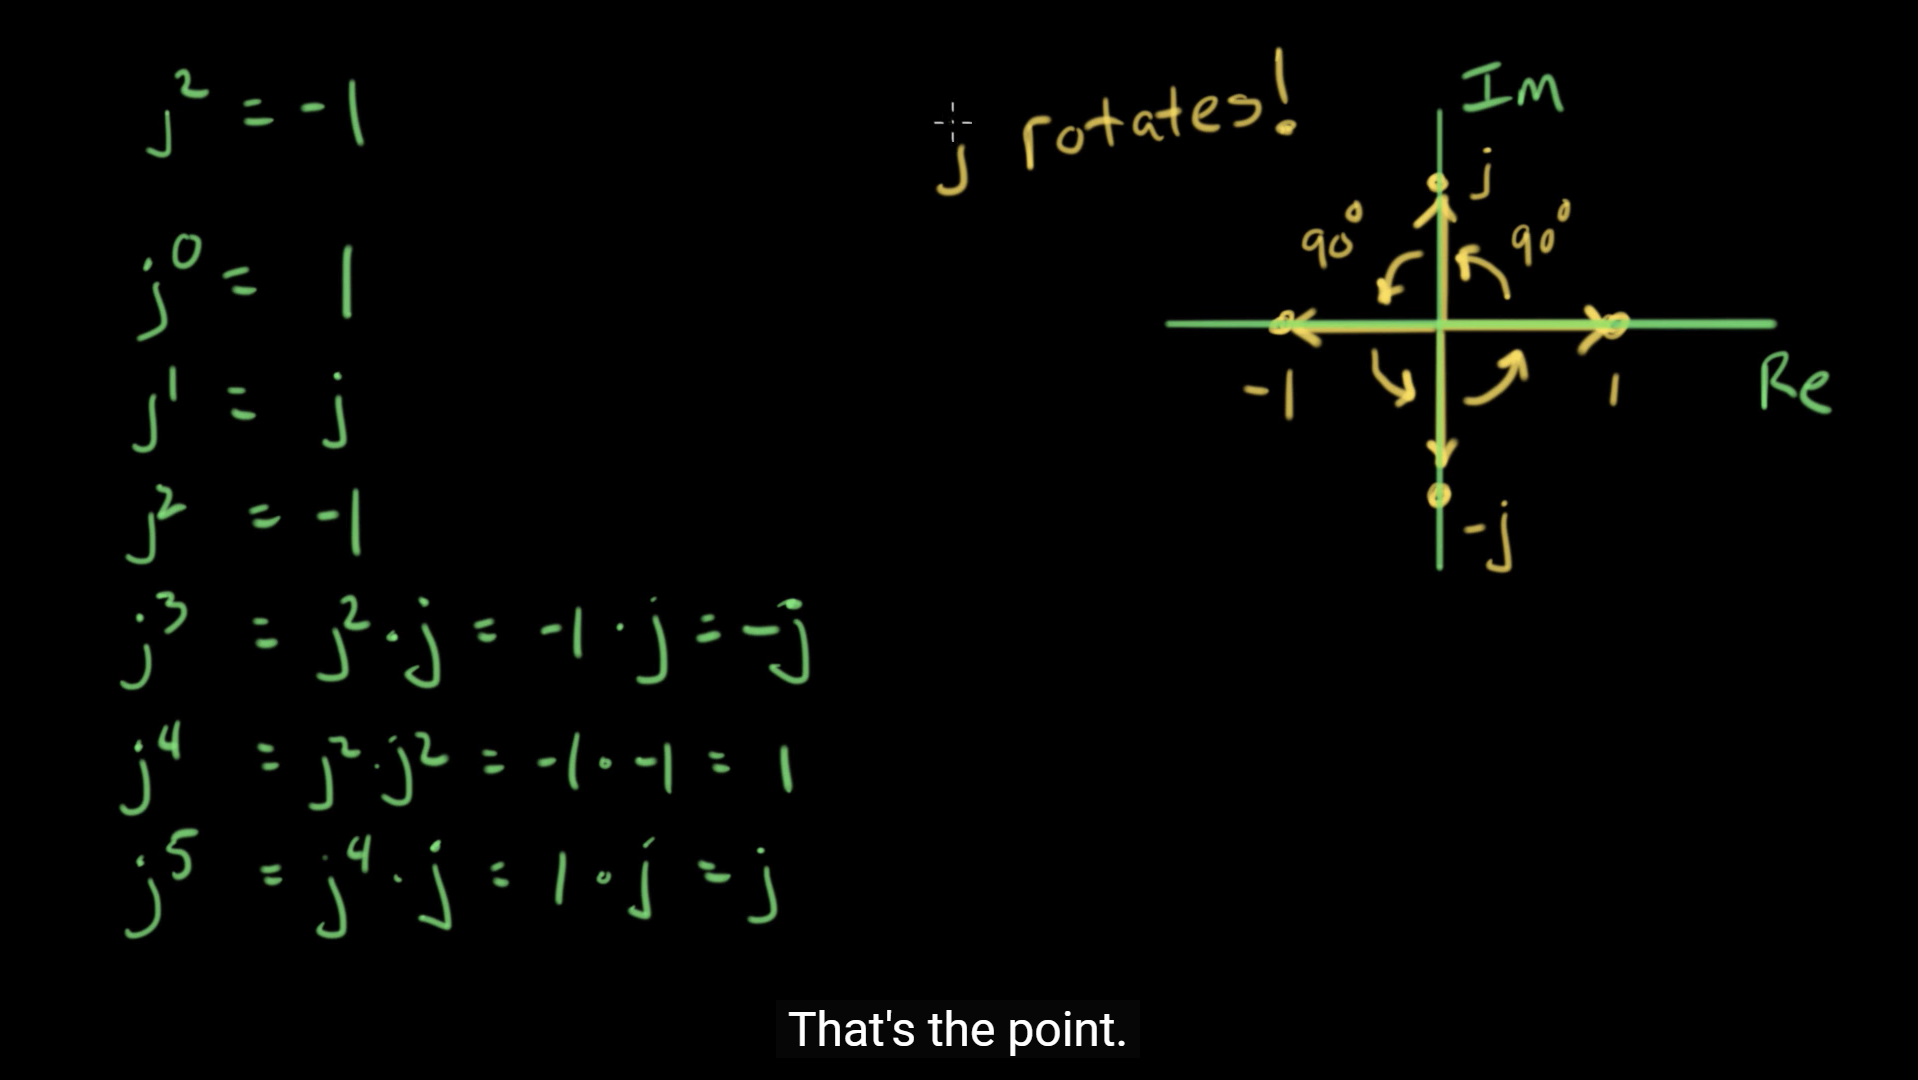 j² = -1
j⁰ = 1
j¹ = j
j² = -1
j³ = j² · j = -1 · j = -j
j⁴ = j² · j² = -1 · -1 = 1
j⁵ = j⁴ · j = 1 · j = j
j rotates!
Im
j
90° 90°
-1 1 Re
-j
That's the point.